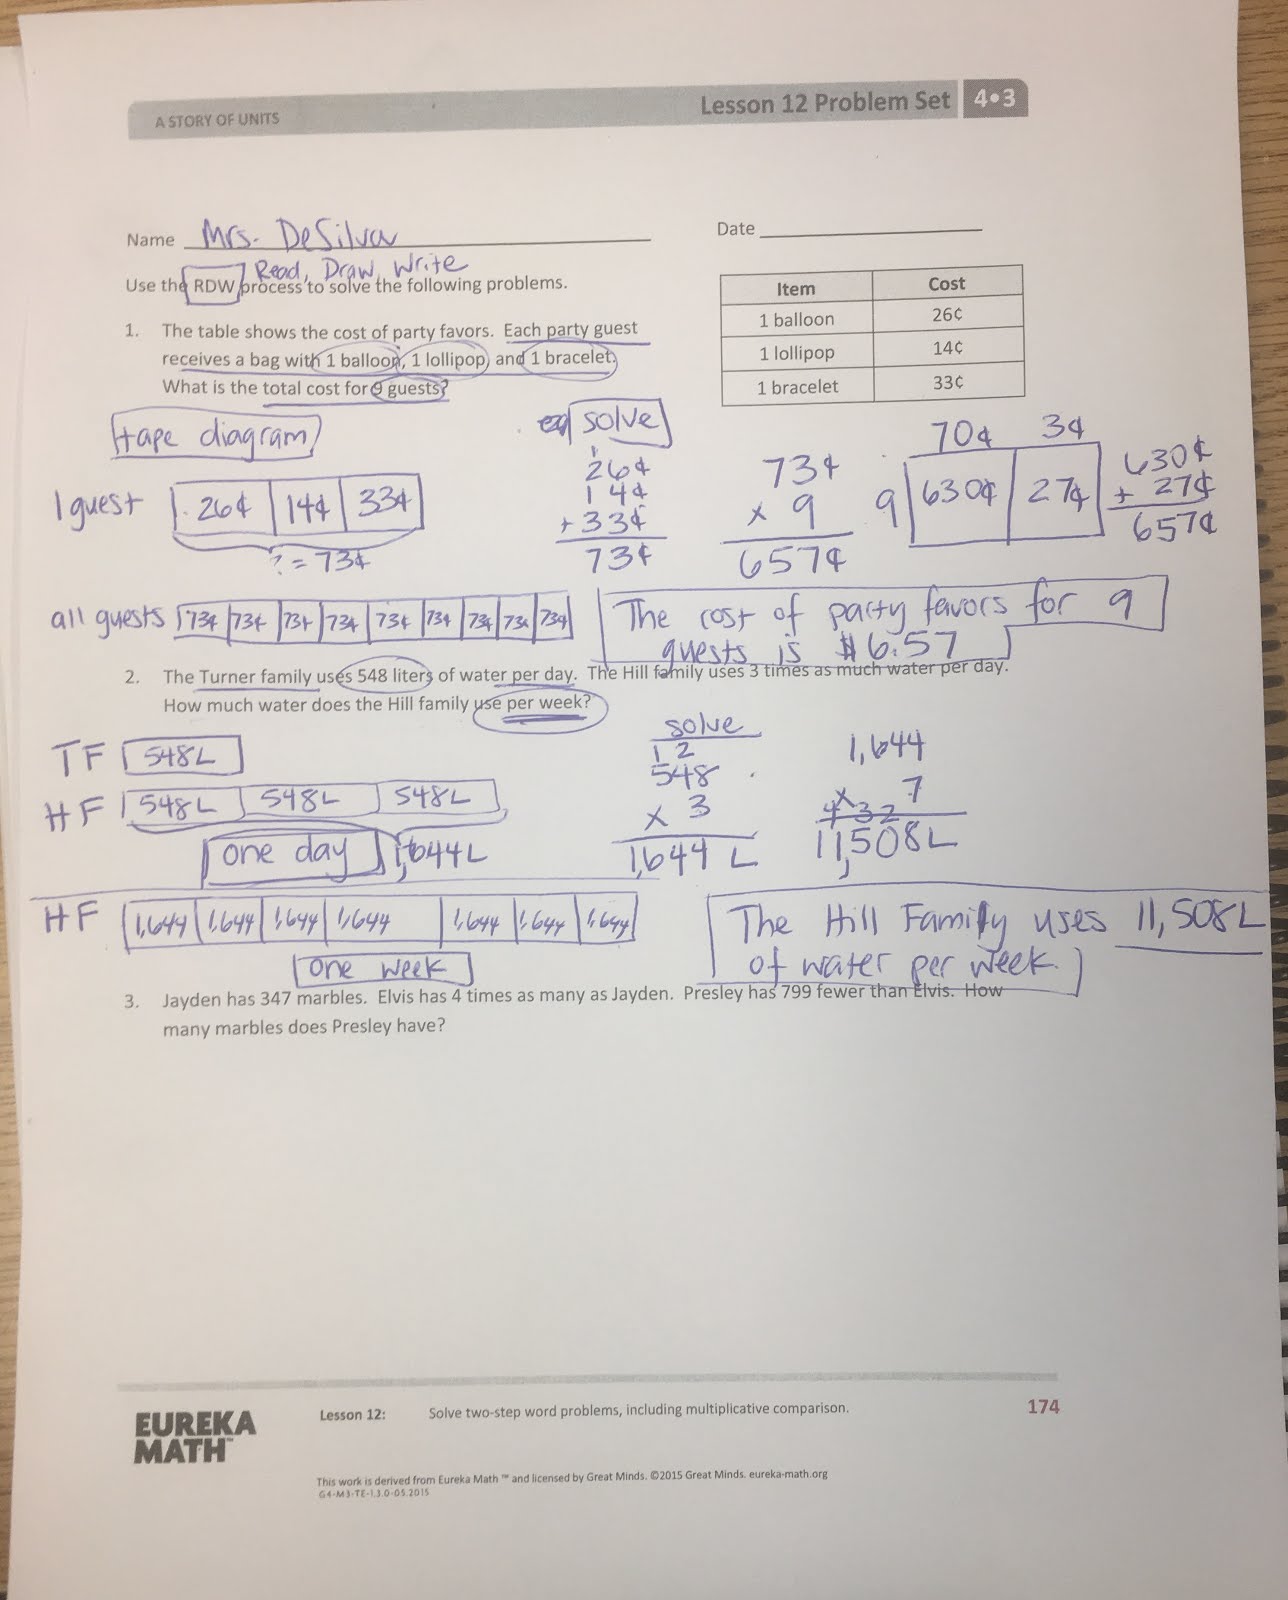 A STORY OF UNITS
Lesson 12 Problem Set 4•3
Name Mrs. DeSilva
Date
Read, Draw, Write
Use the RDW process to solve the following problems.
Item Cost
1 balloon 26¢
1 lollipop 14¢
1 bracelet 33¢
1. The table shows the cost of party favors. Each party guest
receives a bag with 1 balloon, 1 lollipop, and 1 bracelet.
What is the total cost for 9 guests?
tape diagram
1 guest 26¢ 14¢ 33¢
? = 73¢
solve
1
26¢
14¢
+ 33¢
73¢
73¢
x 9
657¢
70¢ 3¢
9 630¢ 27¢
630¢
+ 27¢
657¢
all guests 73¢ 73¢ 73¢ 73¢ 73¢ 73¢ 73¢ 73¢ 73¢
The cost of party favors for 9
guests is $6.57
2. The Turner family uses 548 liters of water per day. The Hill family uses 3 times as much water per day.
How much water does the Hill family use per week?
TF 548L
HF 548L 548L 548L
one day 1,644L
solve
1 2
548
x 3
1,644 L
1,644
x 7
4 32
11,508L
HF 1,644 1,644 1,644 1,644 1,644 1,644 1,644
one week
The Hill Family uses 11,508L
of water per week.
3. Jayden has 347 marbles. Elvis has 4 times as many as Jayden. Presley has 799 fewer than Elvis. How
many marbles does Presley have?
EUREKA
MATH™
Lesson 12: Solve two-step word problems, including multiplicative comparison.
174
This work is derived from Eureka Math ™ and licensed by Great Minds. ©2015 Great Minds. eureka-math.org
G4-M3-TE-1.3.0-05.2015